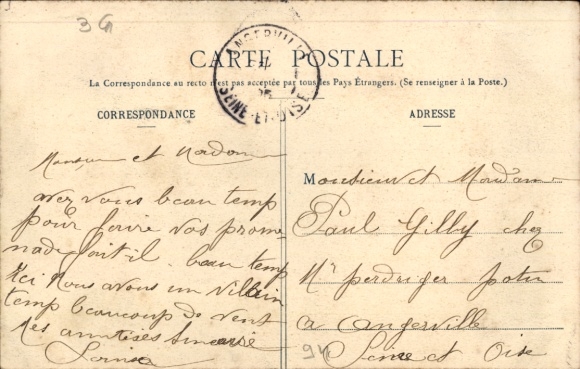 34
CARTE POSTALE
La Correspondance au recto n'est pas acceptée par tous les Pays Étrangers. (Se renseigner à la Poste.)
ANGERVILLE
SEINE-ET-OISE
CORRESPONDANCE
Monsieur et Madame
avez vous beau temp
pour faire vos prome-
nade fait il beau temp
Ici nous avons un villain
temp beaucoup de vent
Mes amitiées sincere
Louise
ADRESSE
Monsieur et Madame
Paul Gilly chez
Mr perdriger
a angerville
Seine et Oise